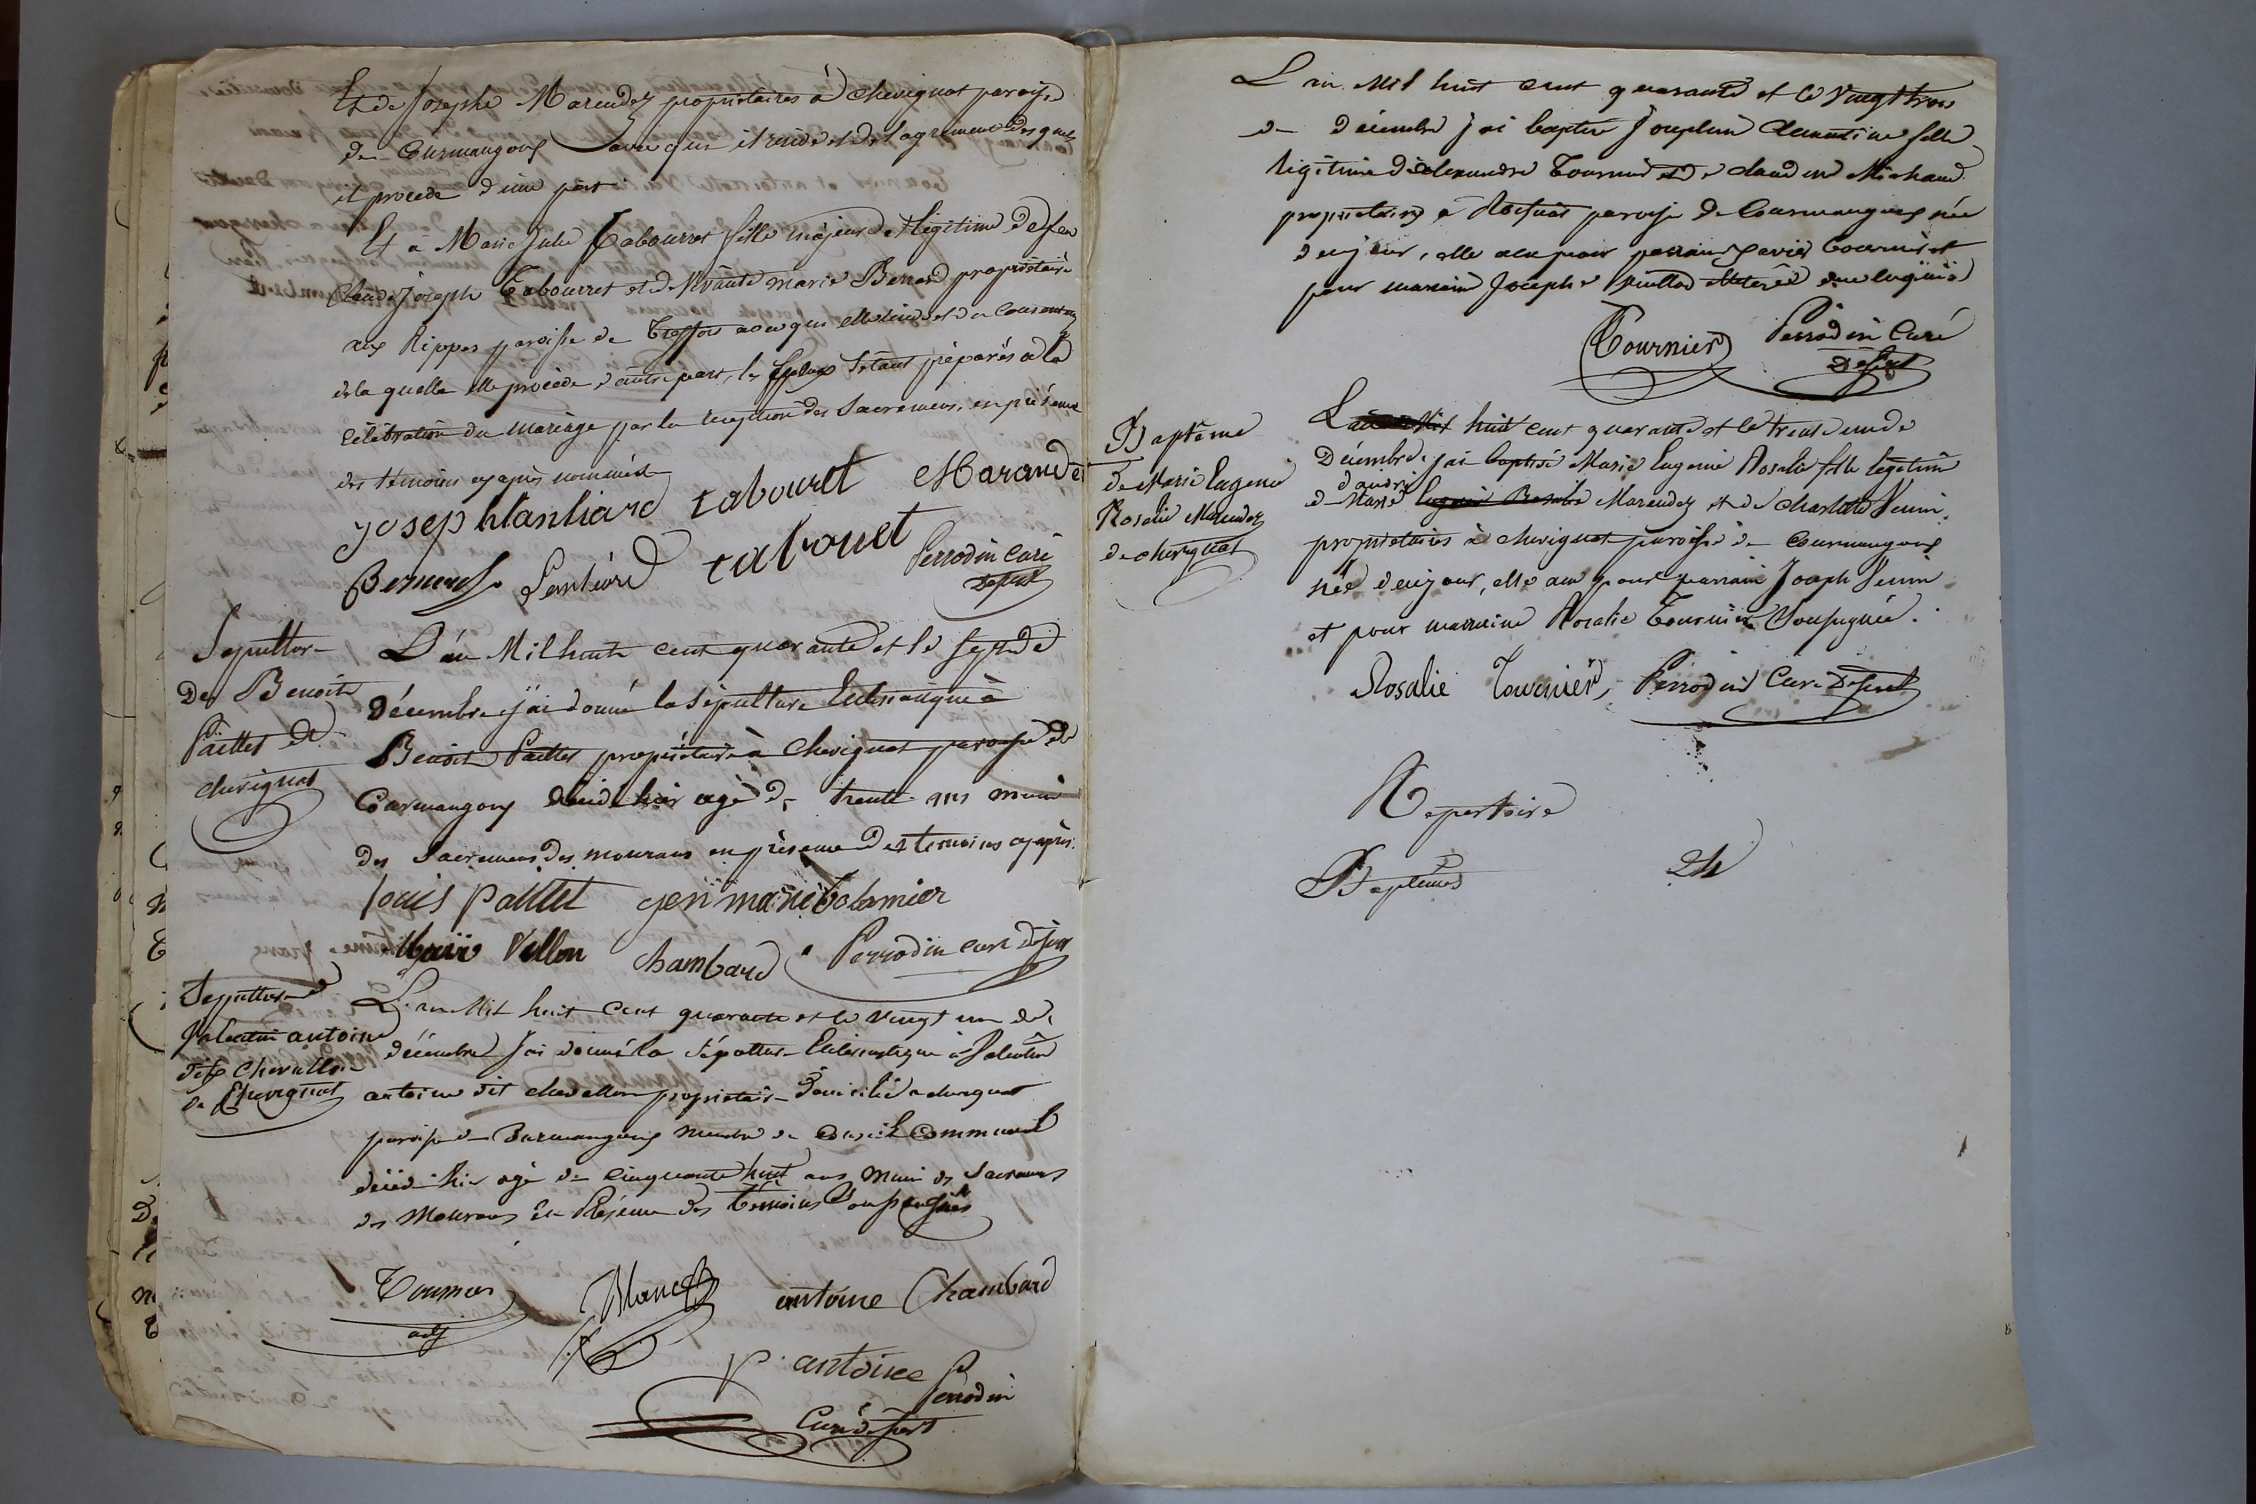 Et de Josephe Marendez propriétaires à Chevignat paroisse
de Courmangoux avec qui il reside et de l'agrement des quels
il procede d'une part
Et à Marie Julie Tabourret fille majeure et legitime de feu
Claude Joseph Tabourret et de vivante marie Bernard propriétaire
aux Rippes paroisse de Treffort avec qui elle reside et du consentem
de la quelle elle procède d'autre part, les Epoux s'étant préparés a la
célébration du mariage par la reception des Sacremens, en présence
des témoins cy après nommés
joseph lanliard tabouret Marandet
Bernard Lanliard tabouret Perrodin curé
Desserv
Sepulture
De Benoit
Paillet de
chevignat
L'an Mil huit cent quarante et le sept de
décembre j'ai donné la Sépulture Eclesiastique à
Benoit Paillet propriétaire à Chevignat paroisse de
Courmangoux décédé hier agé de trente ans muni
des Sacremens des mourans en présence des temoins cy après
louis paillet jean marie
Villon chambard Perrodin curé desserv
Sepulture
Valentin antoine
dit Chevallon
de Chevignat
L'an Mil huit cent quarante et le vingt un de
décembre j'ai donné la Sépulture Eclesiastique à Valentin
antoine dit chevallon propriétaire domicilié a chevignat
paroisse de Courmangoux membre du conseil communal
décédé hier agé de cinquante huit ans muni des Sacremens
des Mourans En Présence des Témoins Soussignés
Tournier
adj
antoine Chambard
V antoine
Perrodin
Curé desserv
L'an Mil huit cent quarante et le vingt trois
de décembre j'ai baptisé Josephine Clementine fille
légitime d'alexandre Tournier et de claudine Michaud
propriétaires à Roissiat paroisse de Courmangoux née
de ce jour, elle a eu pour parrain Xavier Tournier et
pour marraine Josephe
Tournier Perrodin Curé
Desserv
Baptême
de Marie Eugenie
Rosalie Marendez
de chevignat
L'an Mil huit cent quarante et le trente un de
Décembre j'ai baptisé Marie Eugenie Rosalie fille légitime
d'andré
de Marie Eugenie Rosalie Marendez et de charlotte
propriétaires à chevignat paroisse de Courmangoux
née de ce jour, elle a eu pour parrain Joseph
et pour marraine Rosalie Tournier Soussignée.
Rosalie Tournier Perrodin Curé Desserv
Repertoire
Baptêmes 24